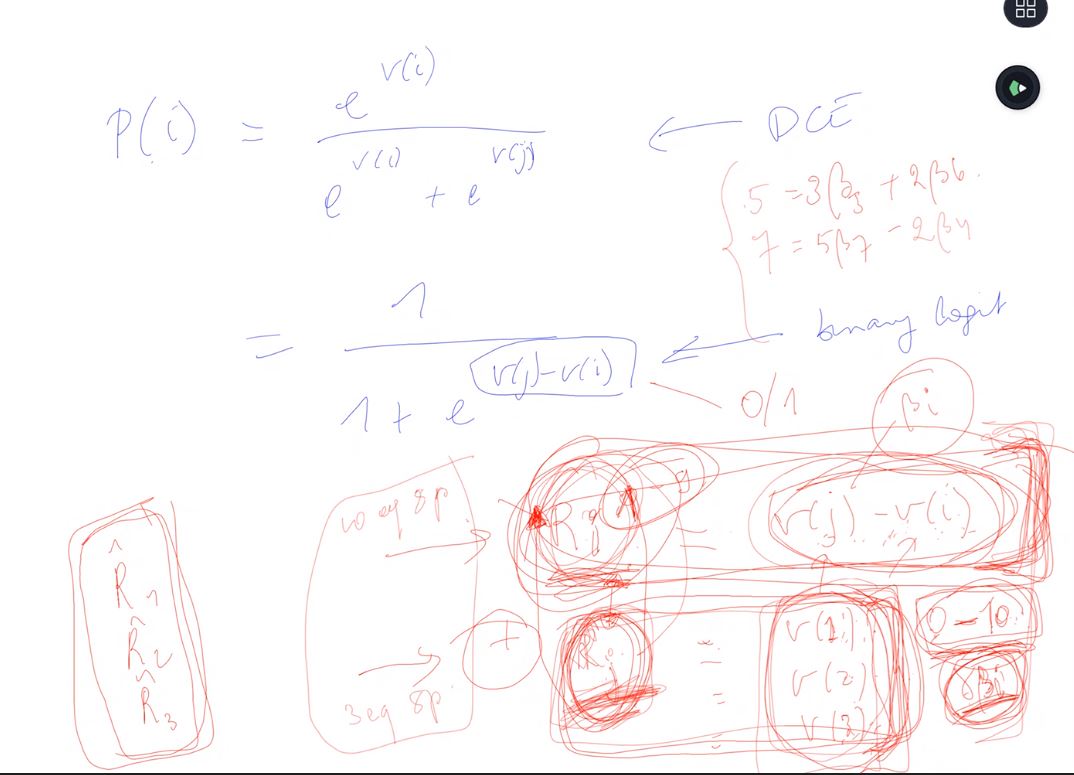 P(i) = e^v(i) / e^v(i) + e^v(j) ← DCE
5 = 3β3 + 2β6
7 = 5β7 - 2β4
= 1 / 1 + e^v(j)-v(i) ← binary logit
0/1
βi
10 eq 8p.
= v(j) - v(i)
R̂1
R̂2
R̂3
3 eq 8p.
+
= v(1)
= v(2)
= v(3)
0-10
βi